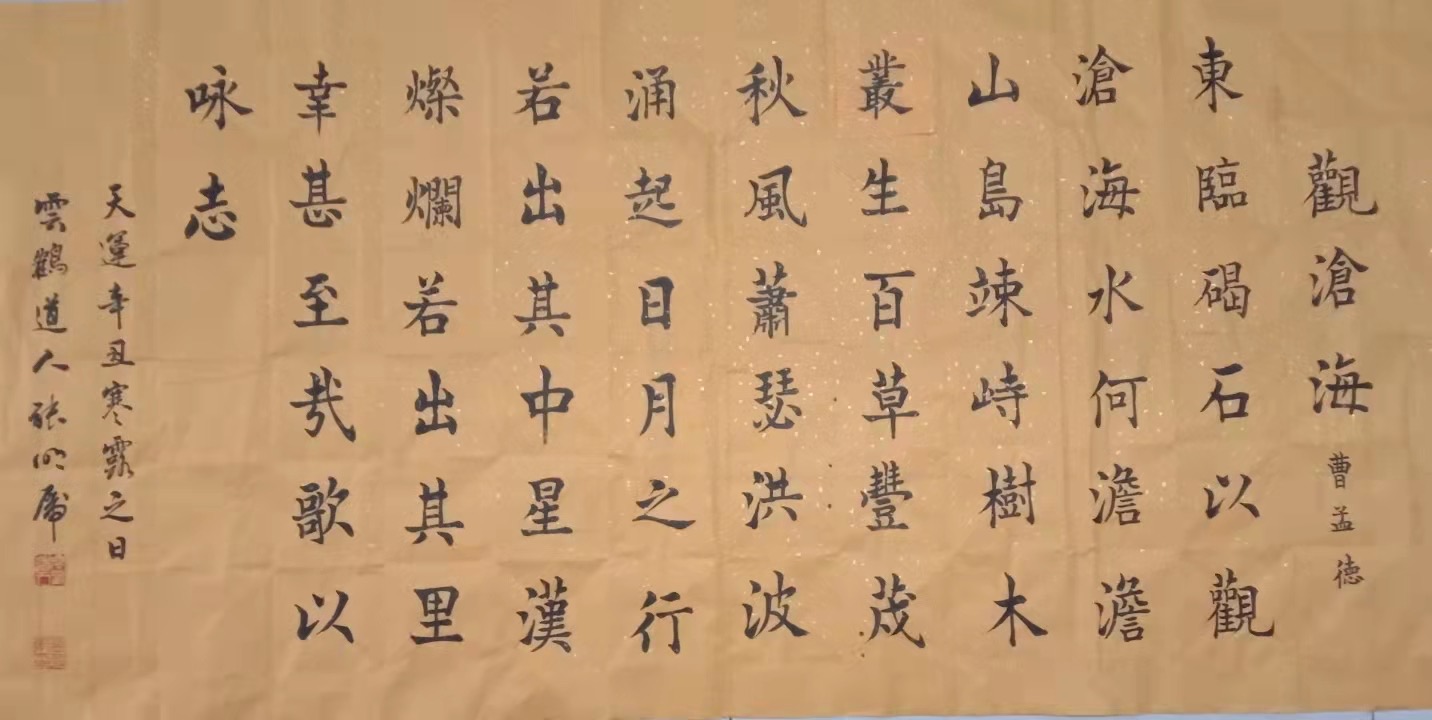 觀滄海 曹孟德
東臨碣石以觀
滄海水何澹澹
山島竦峙樹木
叢生百草豐茂
秋風蕭瑟洪波
涌起日月之行
若出其中星漢
燦爛若出其里
幸甚至哉歌以
咏志
天運辛丑寒露之日
雲鶴道人張